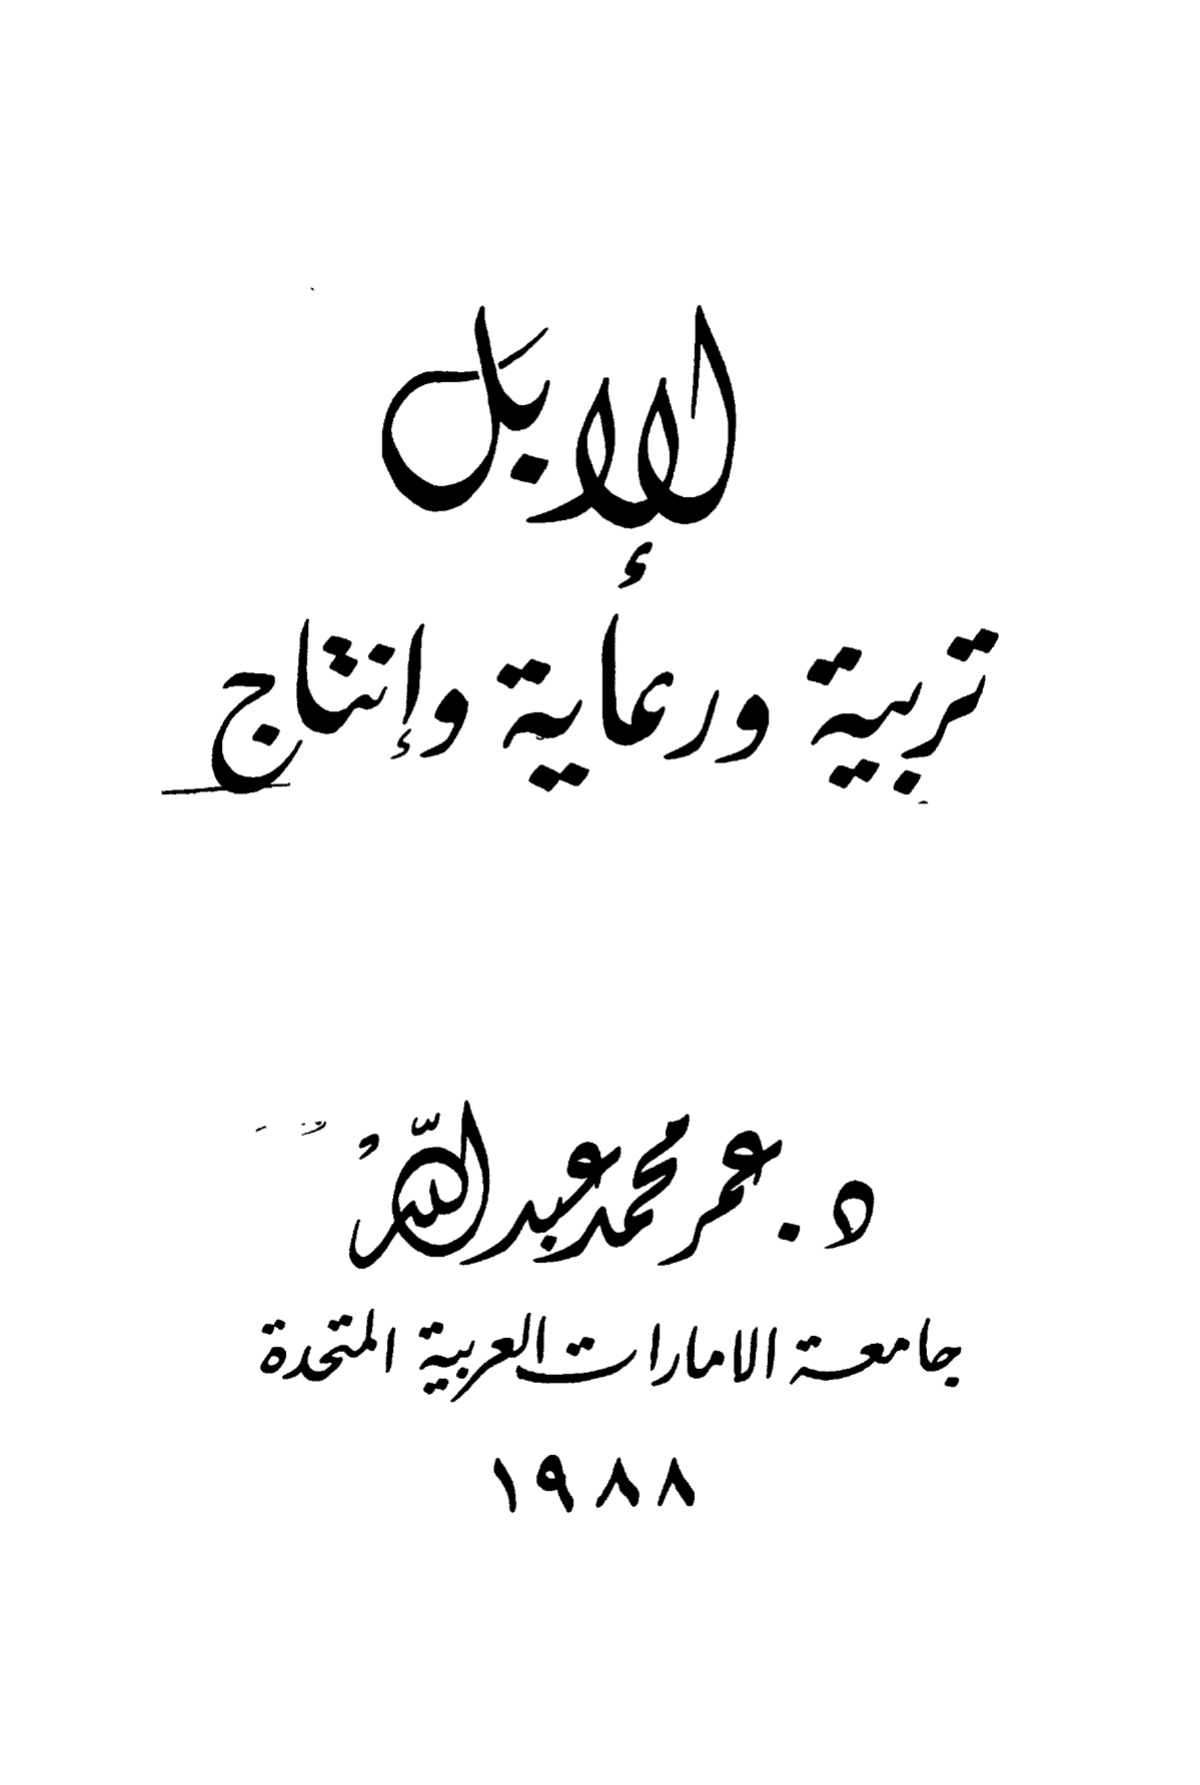 الإبل
تربية ورعاية وإنتاج
د. عمر محمد عبد الله
جامعة الامارات العربية المتحدة
١٩٨٨